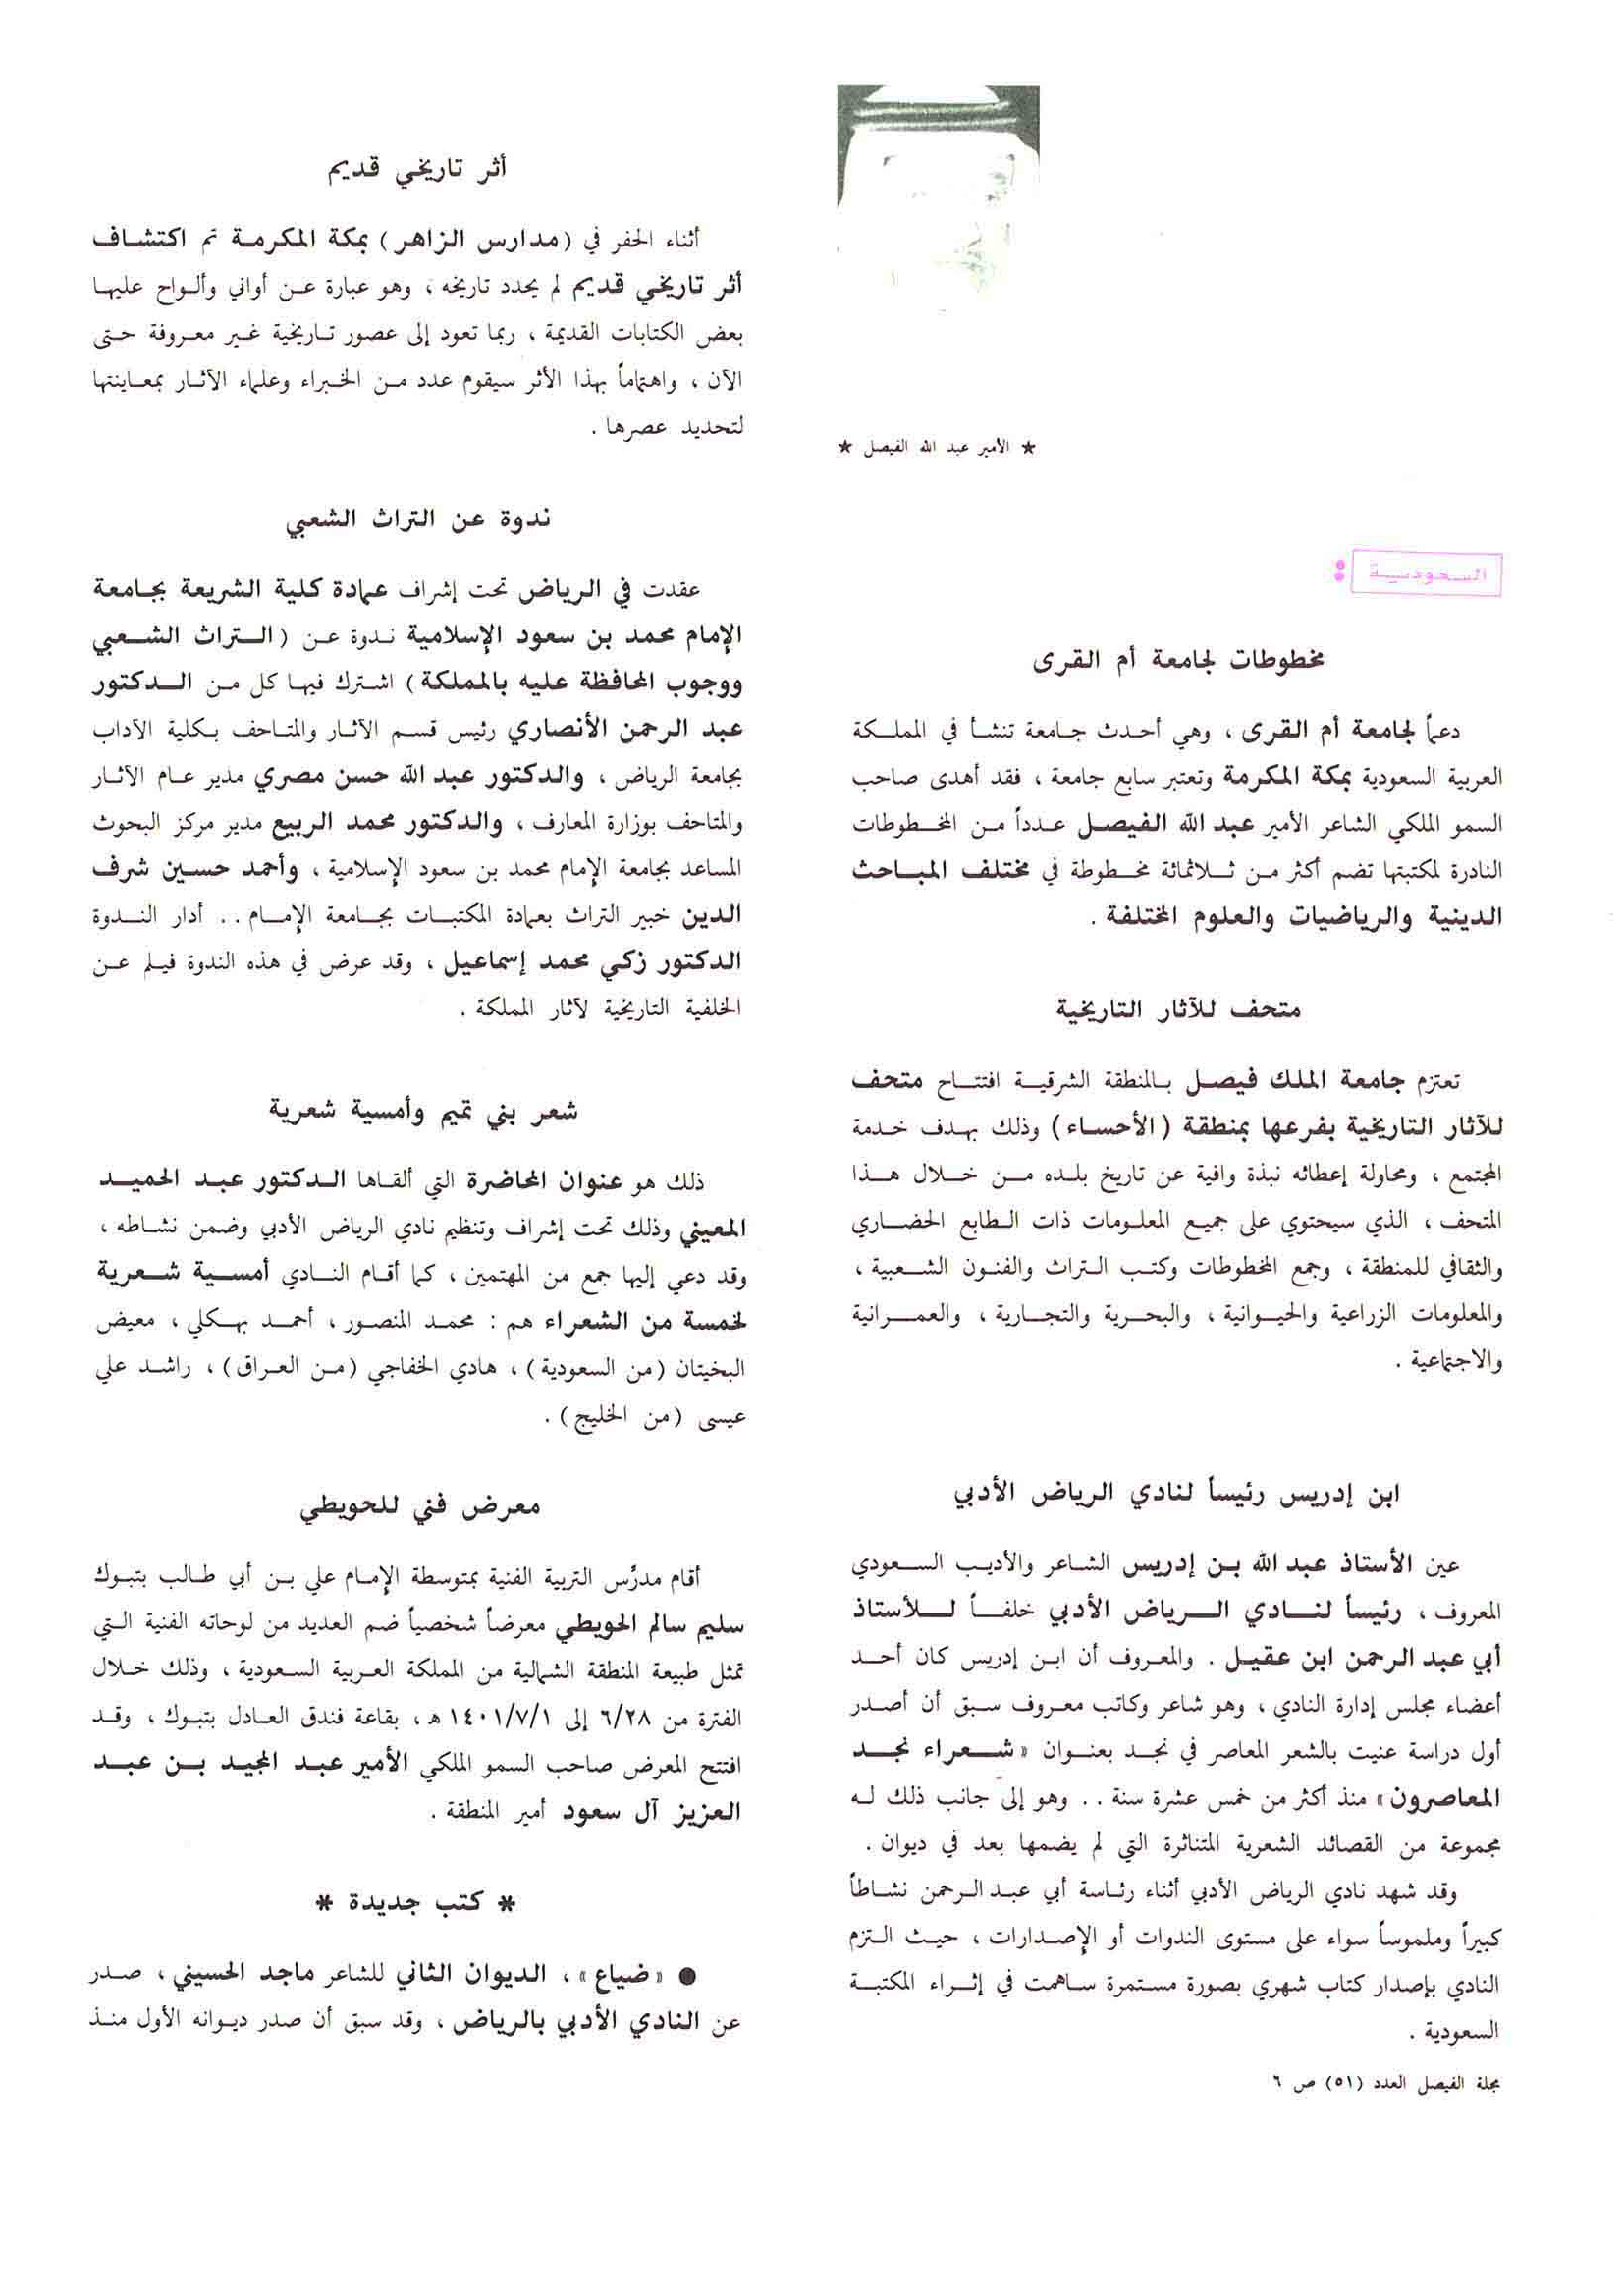 ★ الأمير عبد الله الفيصل ★
السعودية :
مخطوطات لجامعة أم القرى
دعماً لجامعة أم القرى ، وهي أحدث جامعة تنشأ في المملكة
العربية السعودية بمكة المكرمة وتعتبر سابع جامعة ، فقد أهدى صاحب
السمو الملكي الشاعر الأمير عبد الله الفيصل عدداً من المخطوطات
النادرة لمكتبتها تضم أكثر من ثلاثمائة مخطوطة في مختلف المباحث
الدينية والرياضيات والعلوم المختلفة .
متحف للآثار التاريخية
تعتزم جامعة الملك فيصل بالمنطقة الشرقية افتتاح متحف
للآثار التاريخية بفرعها بمنطقة (الأحساء) وذلك بهدف خدمة
المجتمع ، ومحاولة إعطائه نبذة وافية عن تاريخ بلده من خلال هذا
المتحف ، الذي سيحتوي على جميع المعلومات ذات الطابع الحضاري
والثقافي للمنطقة ، وجمع المخطوطات وكتب التراث والفنون الشعبية ،
والمعلومات الزراعية والحيوانية ، والبحرية والتجارية ، والعمرانية
والاجتماعية .
ابن إدريس رئيساً لنادي الرياض الأدبي
عين الأستاذ عبد الله بن إدريس الشاعر والأديب السعودي
المعروف ، رئيساً لنادي الرياض الأدبي خلفاً للأستاذ
أبي عبد الرحمن ابن عقيل . والمعروف أن ابن إدريس كان أحد
أعضاء مجلس إدارة النادي ، وهو شاعر وكاتب معروف سبق أن أصدر
أول دراسة عنيت بالشعر المعاصر في نجد بعنوان «شعراء نجد
المعاصرون» منذ أكثر من خمس عشرة سنة .. وهو إلى جانب ذلك له
مجموعة من القصائد الشعرية المتناثرة التي لم يضمها بعد في ديوان .
وقد شهد نادي الرياض الأدبي أثناء رئاسة أبي عبد الرحمن نشاطاً
كبيراً وملموساً سواء على مستوى الندوات أو الإصدارات ، حيث التزم
النادي بإصدار كتاب شهري بصورة مستمرة ساهمت في إثراء المكتبة
السعودية .
مجلة الفيصل العدد (٥١) ص ٦
أثر تاريخي قديم
أثناء الحفر في (مدارس الزاهر) بمكة المكرمة تم اكتشاف
أثر تاريخي قديم لم يحدد تاريخه ، وهو عبارة عن أواني وألواح عليها
بعض الكتابات القديمة ، ربما تعود إلى عصور تاريخية غير معروفة حتى
الآن ، واهتماماً بهذا الأثر سيقوم عدد من الخبراء وعلماء الآثار بمعاينتها
لتحديد عصرها .
ندوة عن التراث الشعبي
عقدت في الرياض تحت إشراف عمادة كلية الشريعة بجامعة
الإمام محمد بن سعود الإسلامية ندوة عن (التراث الشعبي
ووجوب المحافظة عليه بالمملكة) اشترك فيها كل من الدكتور
عبد الرحمن الأنصاري رئيس قسم الآثار والمتاحف بكلية الآداب
بجامعة الرياض ، والدكتور عبد الله حسن مصري مدير عام الآثار
والمتاحف بوزارة المعارف ، والدكتور محمد الربيع مدير مركز البحوث
المساعد بجامعة الإمام محمد بن سعود الإسلامية ، وأحمد حسين شرف
الدين خبير التراث بعمادة المكتبات بجامعة الإمام .. أدار الندوة
الدكتور زكي محمد إسماعيل ، وقد عرض في هذه الندوة فيلم عن
الخلفية التاريخية لآثار المملكة .
شعر بني تميم وأمسية شعرية
ذلك هو عنوان المحاضرة التي ألقاها الدكتور عبد الحميد
المعيني وذلك تحت إشراف وتنظيم نادي الرياض الأدبي وضمن نشاطه ،
وقد دعي إليها جمع من المهتمين ، كما أقام النادي أمسية شعرية
لخمسة من الشعراء هم : محمد المنصور ، أحمد بهكلي ، معيض
البخيتان (من السعودية) ، هادي الخفاجي (من العراق) ، راشد علي
عيسى (من الخليج) .
معرض فني للحويطي
أقام مدرّس التربية الفنية بمتوسطة الإمام علي بن أبي طالب بتبوك
سليم سالم الحويطي معرضاً شخصياً ضم العديد من لوحاته الفنية التي
تمثل طبيعة المنطقة الشمالية من المملكة العربية السعودية ، وذلك خلال
الفترة من ٦/٢٨ إلى ١٤٠١/٧/١ هـ ، بقاعة فندق العادل بتبوك ، وقد
افتتح المعرض صاحب السمو الملكي الأمير عبد المجيد بن عبد
العزيز آل سعود أمير المنطقة .
* كتب جديدة *
● «ضياع» ، الديوان الثاني للشاعر ماجد الحسيني ، صدر
عن النادي الأدبي بالرياض ، وقد سبق أن صدر ديوانه الأول منذ